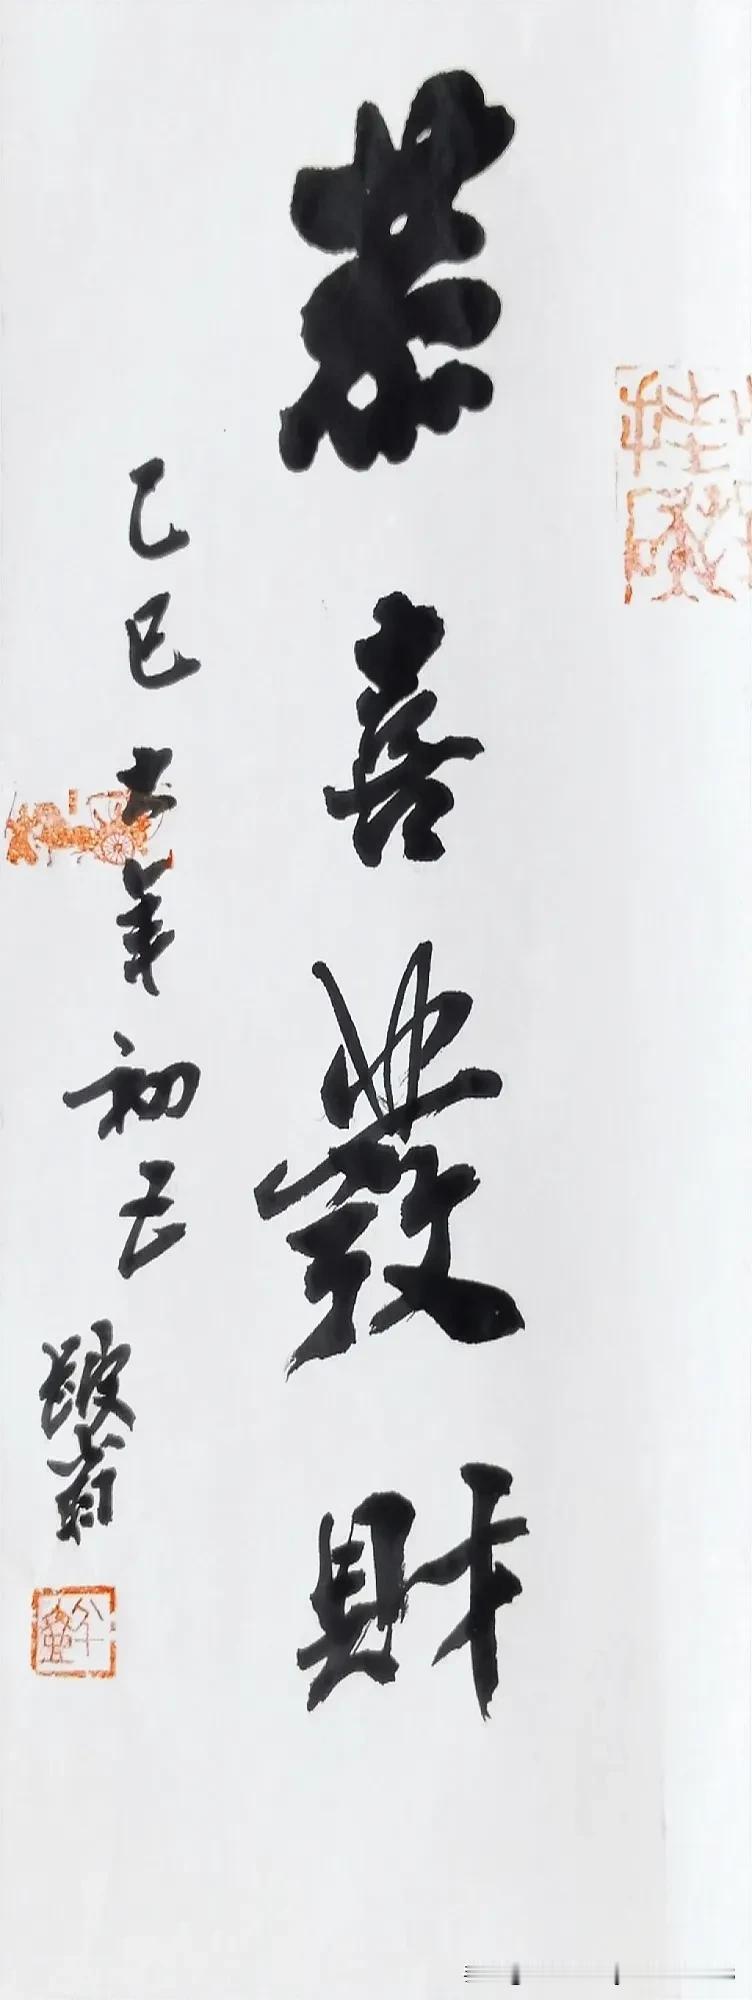 恭喜發財
乙巳大年初五
翁